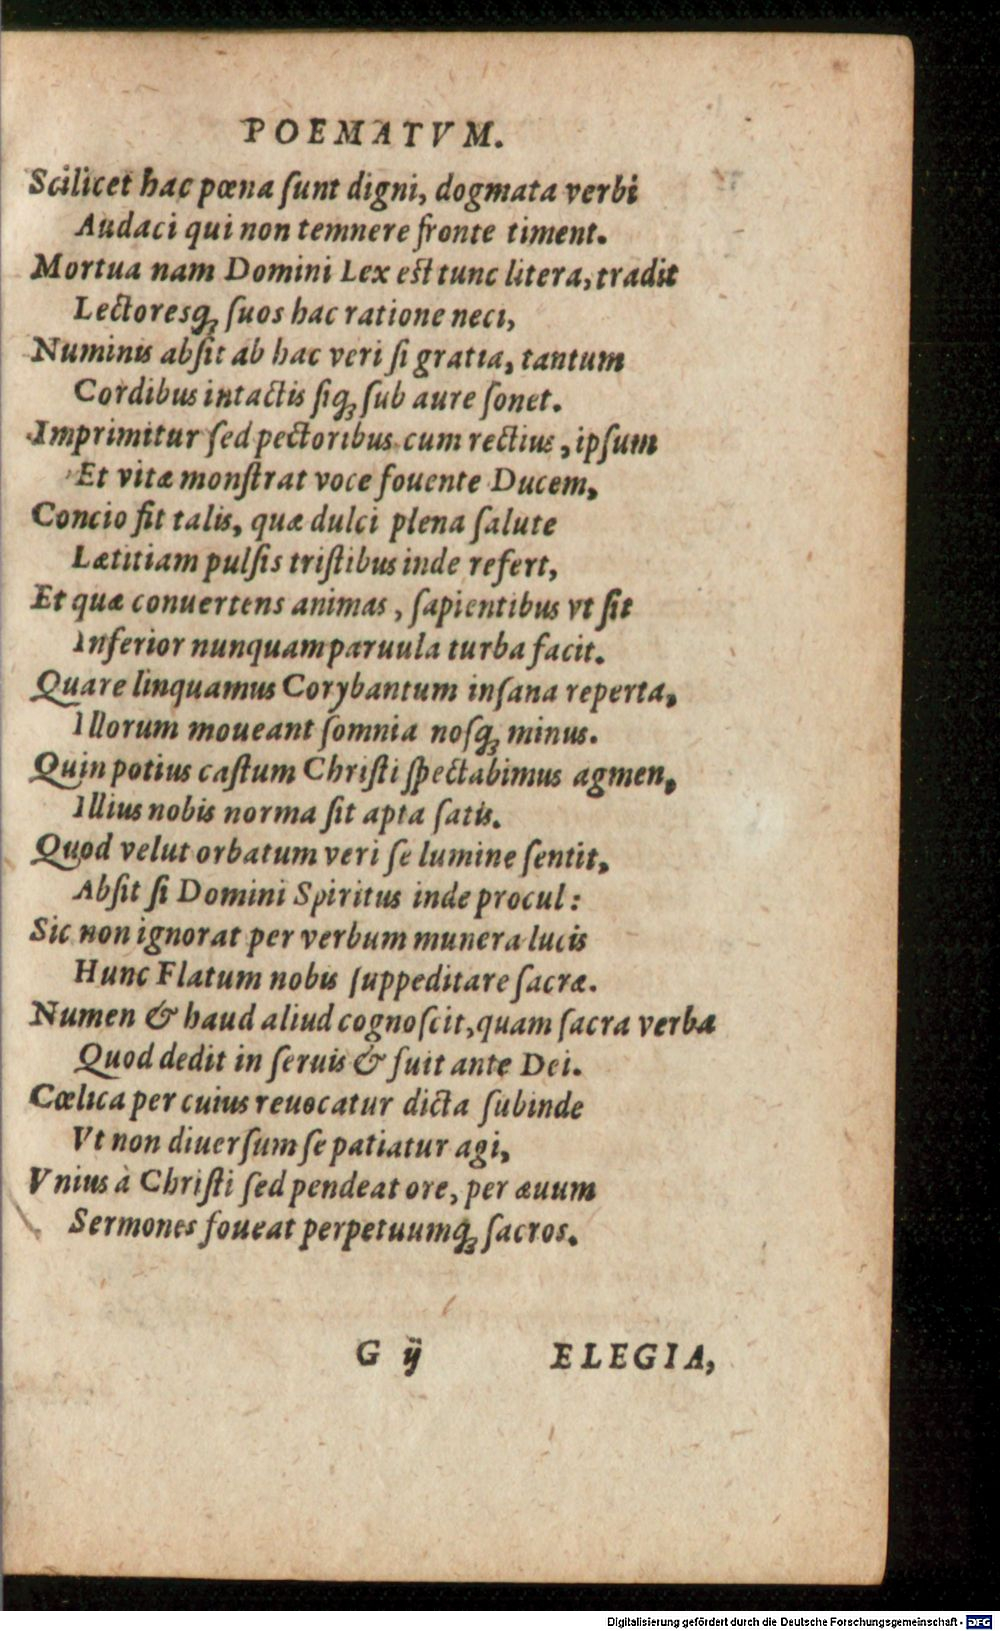 POEMATVM.
Scilicet hac pœna ſunt digni, dogmata verbi
Audaci qui non temnere fronte timent.
Mortua nam Domini Lex est tunc litera, tradit
Lectoresq́; ſuos hac ratione neci,
Numinis abſit ab hac veri ſi gratia, tantum
Cordibus intactis ſiq́; ſub aure ſonet.
Imprimitur ſed pectoribus cum rectius, ipſum
Et vitæ monſtrat voce fouente Ducem,
Concio fit talis, quæ dulci plena ſalute
Lætitiam pulſis triſtibus inde refert,
Et quæ conuertens animas, ſapientibus vt ſit
Inferior nunquam paruula turba facit.
Quare linquamus Corybantum inſana reperta,
Illorum moueant ſomnia noſq́; minus.
Quin potius caſtum Chriſti ſpectabimus agmen,
Illius nobis norma ſit apta ſatis.
Quod velut orbatum veri ſe lumine ſentit,
Abſit ſi Domini Spiritus inde procul:
Sic non ignorat per verbum munera lucis
Hunc Flatum nobis ſuppeditare ſacræ.
Numen & haud aliud cognoſcit, quam ſacra verba
Quod dedit in ſeruis & fuit ante Dei.
Cœlica per cuius reuocatur dicta ſubinde
Vt non diuerſum ſe patiatur agi,
Vnius à Chriſti ſed pendeat ore, per æuum
Sermones foueat perpetuumq́; ſacros.
G ij ELEGIA,
Digitalisierung gefördert durch die Deutsche Forschungsgemeinschaft - DFG